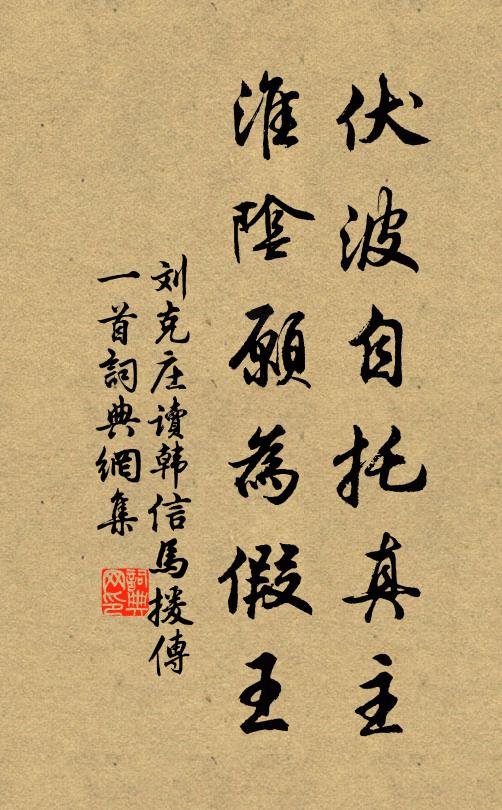 伏波自托真主
淮陰願為假王
刘克庄讀韩信馬援傳
一首詞典網集
詞典
网印